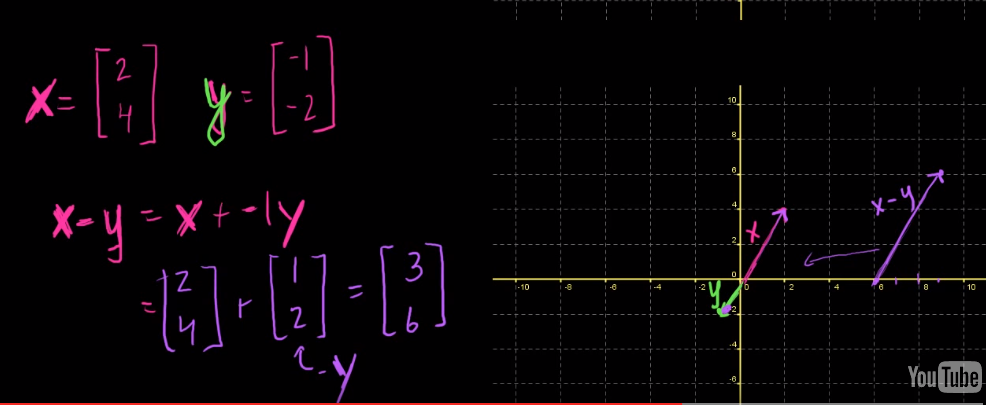 x = [2 4] y = [-1 -2]
x - y = x + -1y
= [2 4] + [1 2] = [3 6]
-y
10
8
6
4
2
0
-10 -8 -6 -4 -2 0 2 4 6 8 10
-2
-4
-6
x
y
x - y
YouTube